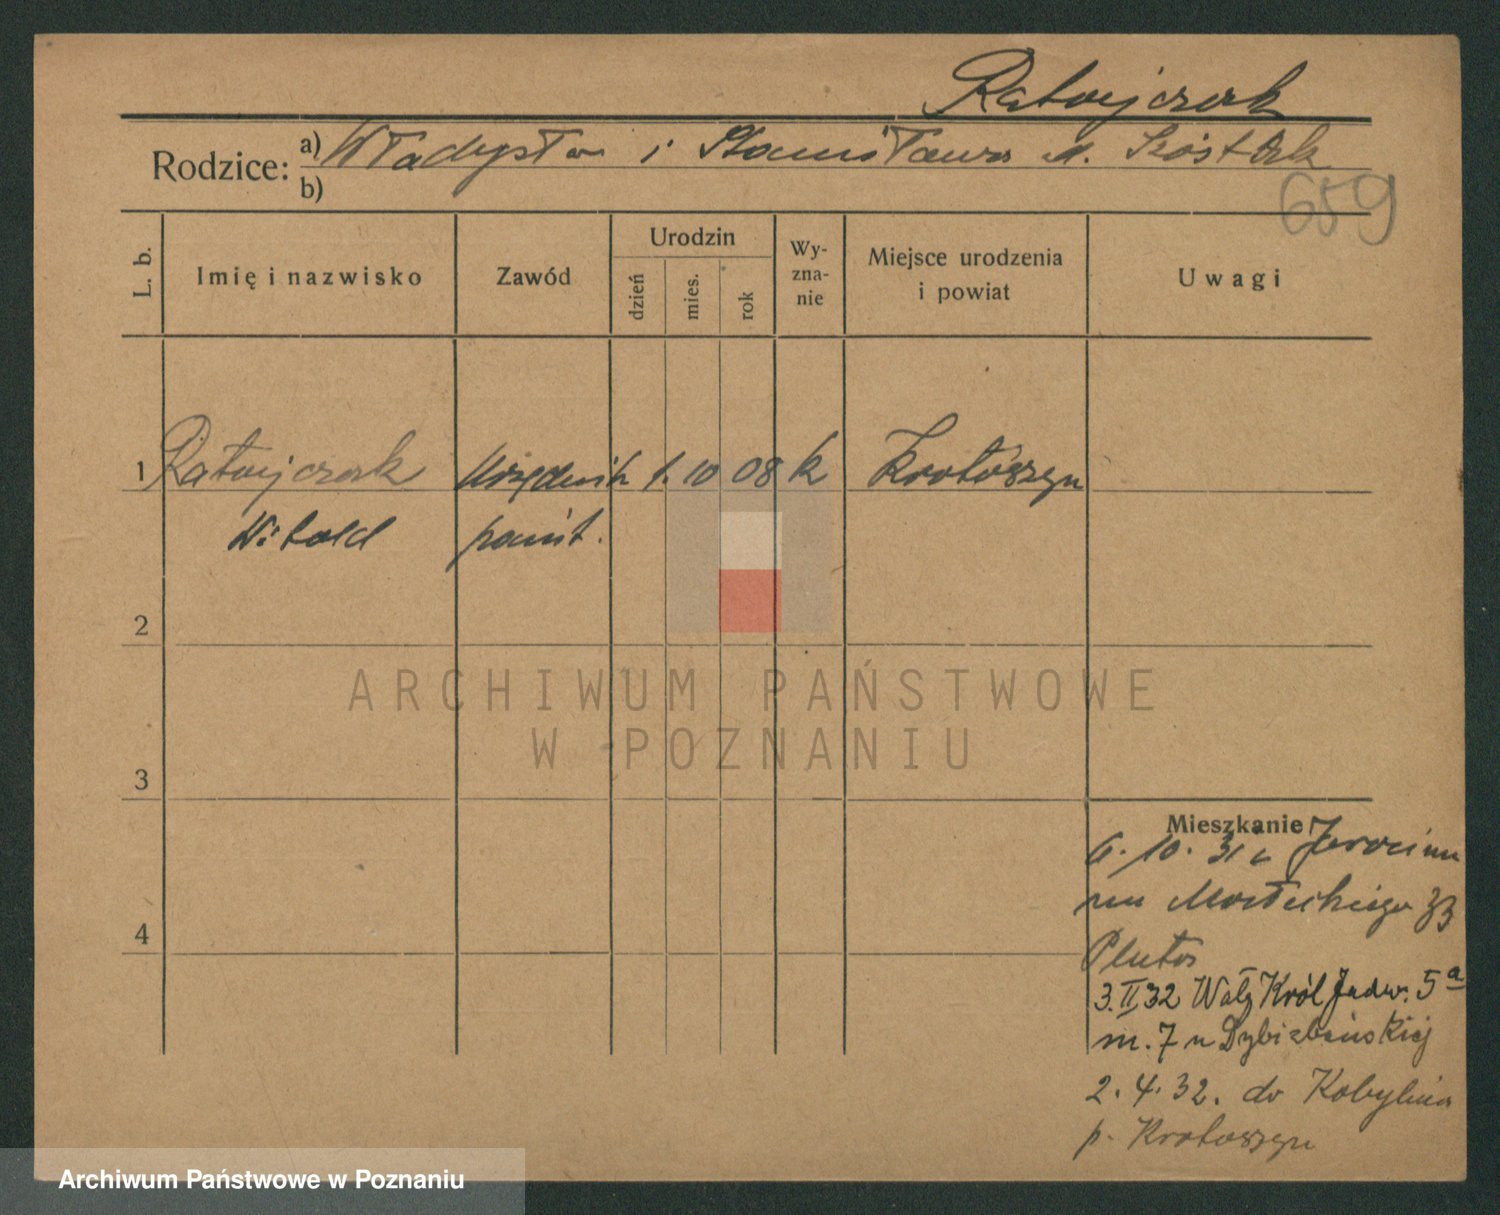 Ratajczak
Rodzice: a) Władysław i Stanisława d.
b)
659
L. b.
Imię i nazwisko
Zawód
Urodzin
dzień
mies.
rok
Wy-
zna-
nie
Miejsce urodzenia
i powiat
Uwagi
1 Ratajczak Urzędnik 1. 10 08 k Krotoszyn
Witold państ.
2
ARCHIWUM PAŃSTWOWE
W POZNANIU
3
Mieszkanie
6. 10. 31 z Jarocina
33
4
3.II 32 Wały Król Jadw. 5a
m. 7 u
2. 4. 32. do Kobylina
p. Krotoszyn
Archiwum Państwowe w Poznaniu